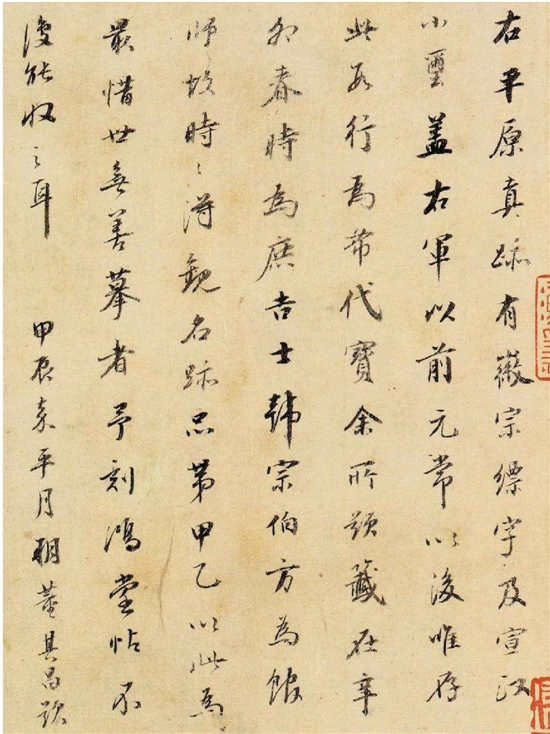 右平原真跡有徽宗縹字及宣汊
小璽蓋右軍以前元常以後唯存
此數行為希代寶余所題籤在辛
卯春時為庶吉士韓宗伯方為館
師故時時得觀名跡品第甲乙以此為
最惜世無善摹者予刻鴻堂帖不
復能收之耳 甲辰嘉平月朔董其昌跋